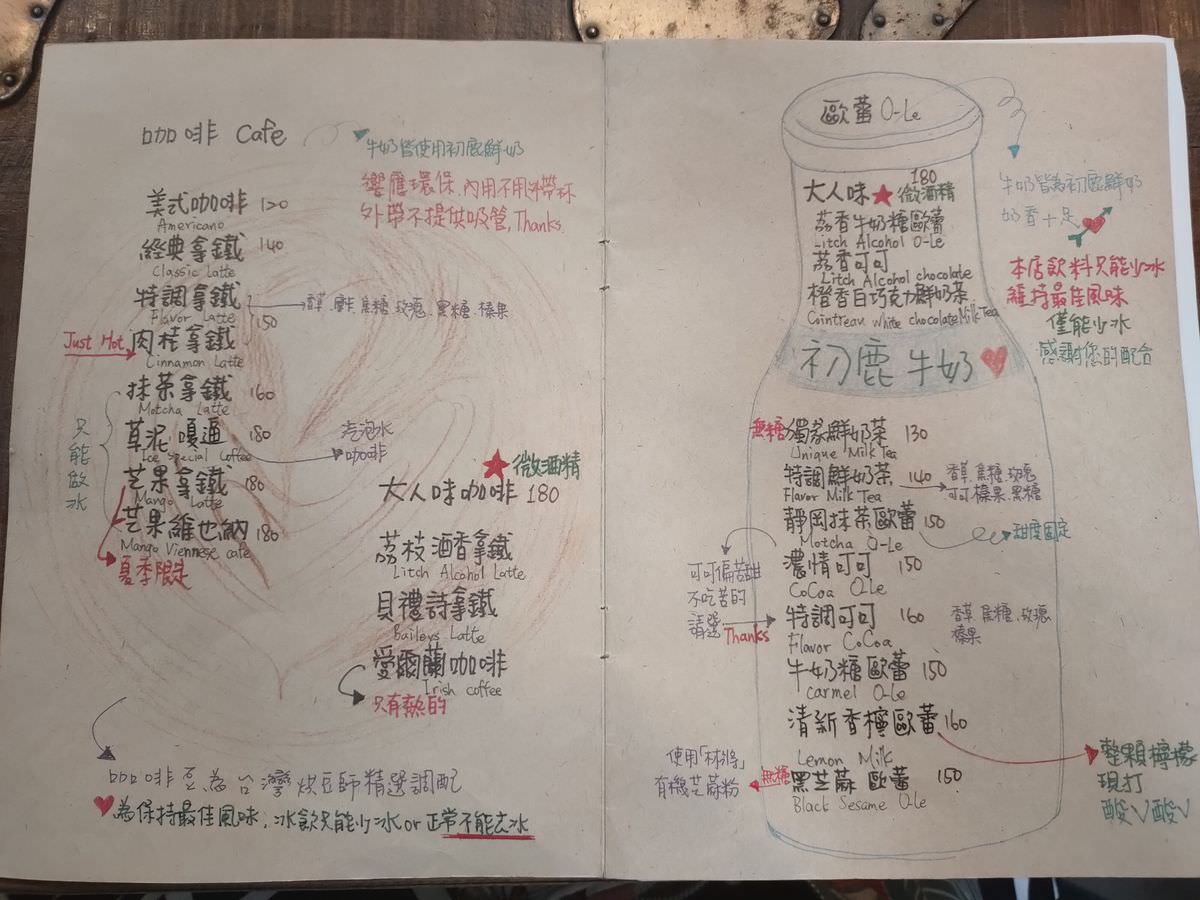 咖啡 Cafe
牛奶皆使用初鹿鮮奶
響應環保,內用不用外帶杯
外帶不提供吸管,Thanks.
美式咖啡 120
Americano
經典拿鐵 140
Classic Latte
特調拿鐵
焦糖.玫瑰.黑糖.榛果
Flavor Latte
150
Just Hot 肉桂拿鐵
Linnamon Latte
抹茶拿鐵 160
Motcha Latte
只能做冰
草泥嘎逼 180
Ice Special Coffee
汽泡水
咖啡
芒果拿鐵 180
Mango Latte
芒果維也納 180
Mango Viennese cafe
夏季限定
★微酒精
大人味咖啡 180
荔枝酒香拿鐵
Litch Alcohol Latte
貝禮詩拿鐵
Baileys Latte
愛爾蘭咖啡
Irish coffee
只有熱的
咖啡豆為台灣烘豆師精選調配
為保持最佳風味,冰飲只能少冰or正常不能去冰
歐蕾 O-Le
180
大人味★微酒精
荔香牛奶糖歐蕾
Litch Alcohol O-Le
荔香可可
Litch Alcohol chocolate
橙香白巧克力鮮奶茶
Cointreau white chocolate Milk Tea
牛奶皆為初鹿鮮奶
奶香十足
本店飲料只能少冰
維持最佳風味
僅能少冰
感謝您的配合
初鹿牛奶
無糖 獨家鮮奶茶 130
Unique Milk Tea
特調鮮奶茶 140
Flavor Milk Tea
香草.焦糖.玫瑰
可可.榛果.黑糖
靜岡抹茶歐蕾 150
Motcha O-Le
甜度固定
濃情可可 150
CoCoa O-Le
可可偏苦甜
不吃苦的
請選
Thanks
特調可可 160
Flavor CoCoa
香草.焦糖.玫瑰
榛果
牛奶糖歐蕾 150
Carmel O-Le
清新香檸歐蕾 160
Lemon Milk
整顆檸檬
現打
酸V酸V
使用「」
有機芝麻粉
無糖 黑芝蔴歐蕾 150
Black Sesame O-Le